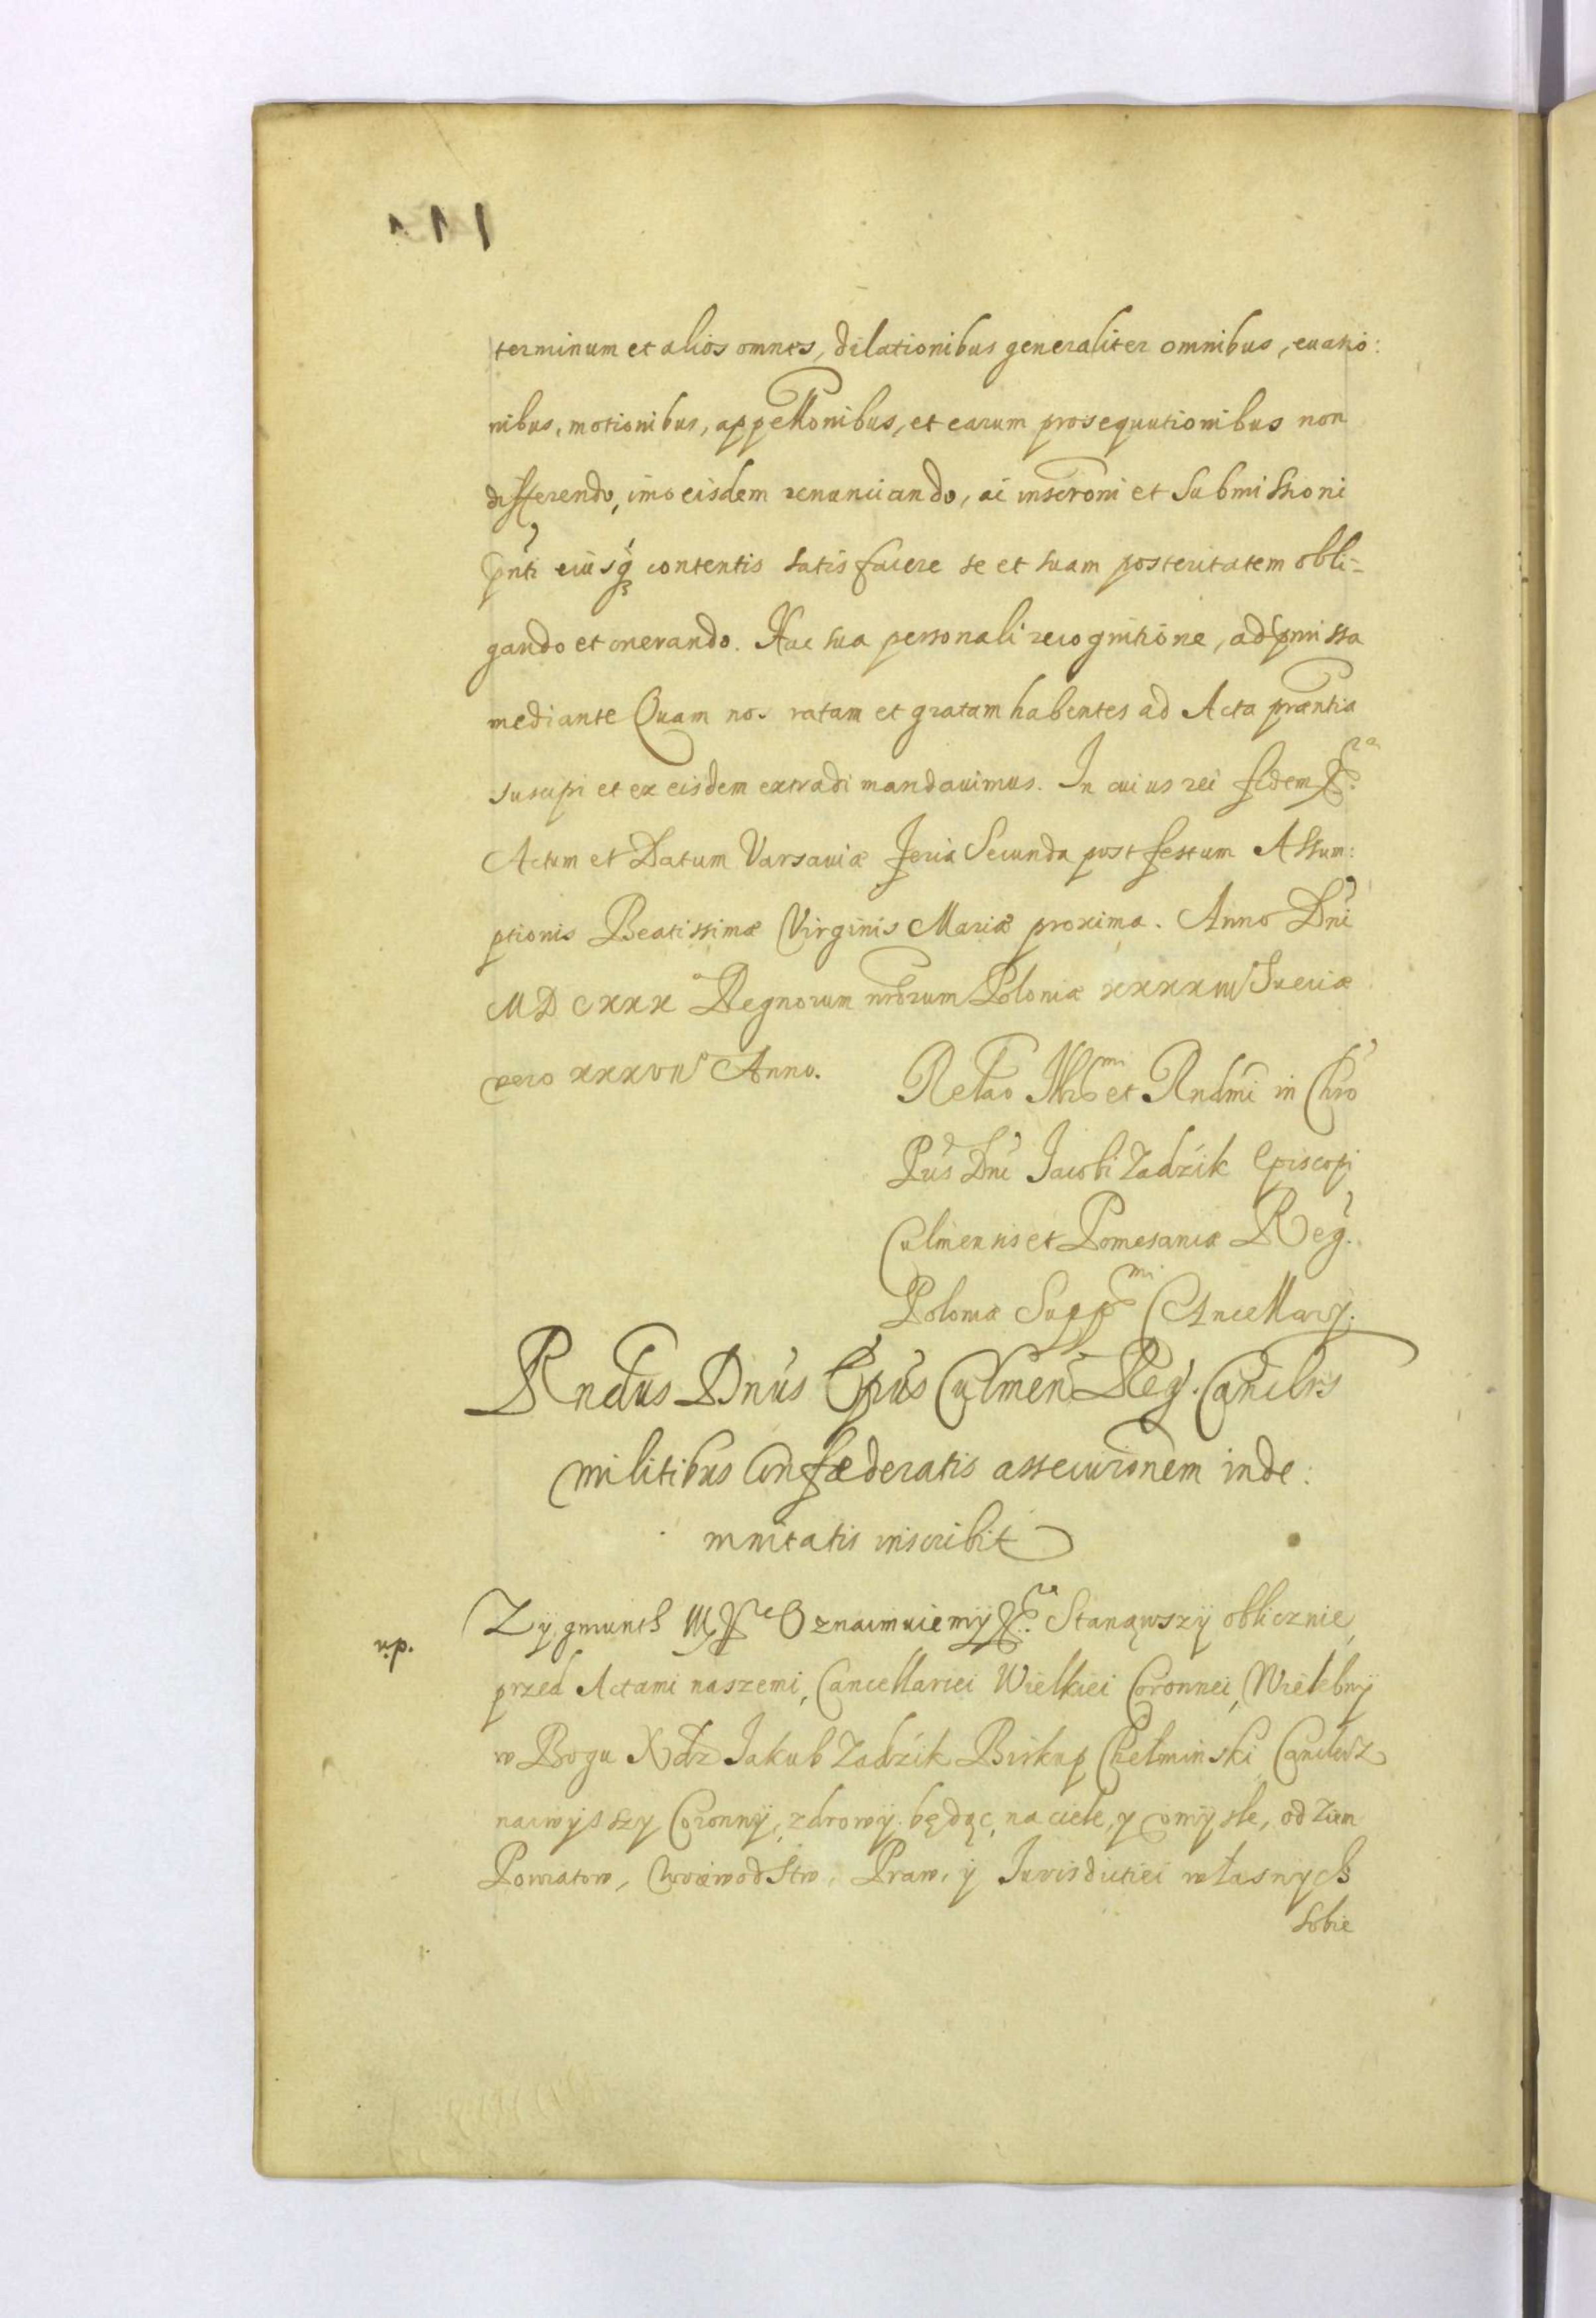 terminum et alios omnes, dilationibus generaliter omnibus, euasio:
nibus, motionibus, appellonibus, et earum prosequutionibus non
differendo, imo eisdem renunciando, ac inscroni et Submissioni
pnti eiusq contentis satisfacere se et suam posteritatem obli-
gando et onerando. Hac sua personali recognitione, ad pmissa
mediante Quam nos ratam et gratam habentes ad Acta præntia
suscipi et ex eisdem extradi mandauimus. In cuius rei fidem &ra.
Actum et Datum Varsauiæ Feria Secunda post festum Assum:
ptionis Beatissimæ Virginis Mariæ proxima. Anno Dni
MDCXXXo Regnorum nrorum Poloniæ Sueciæ
vero Anno.
Relao Illrmi et Rndmi in Chro
Pris Dni Jacobi Zadzik Episcopi
Culmensis et Pomesaniæ Reg.
Poloniæ Suppmi Cancellary.
Rndus Dnus Epus Culmen Reg. Cancilrs
militibus Confæderatis assecuronem inde:
mnitatis inscribit
np.
Zygmunth III &c Oznaimuiemy &ra. Stanąwszy oblicznie
przed Actami naszemi, Cancellariei Wielkiei Coronnei, Wielebny
w Bogu Xdz Jakub Zadzik Biskup Chełminski Canclerz
naiwysszy Coronny, zdrowy będąc, na ciele, y vmysle, od Ziem
Powiatow, Woiewodstw, Praw, y Jurisdictiei własnych
sobie